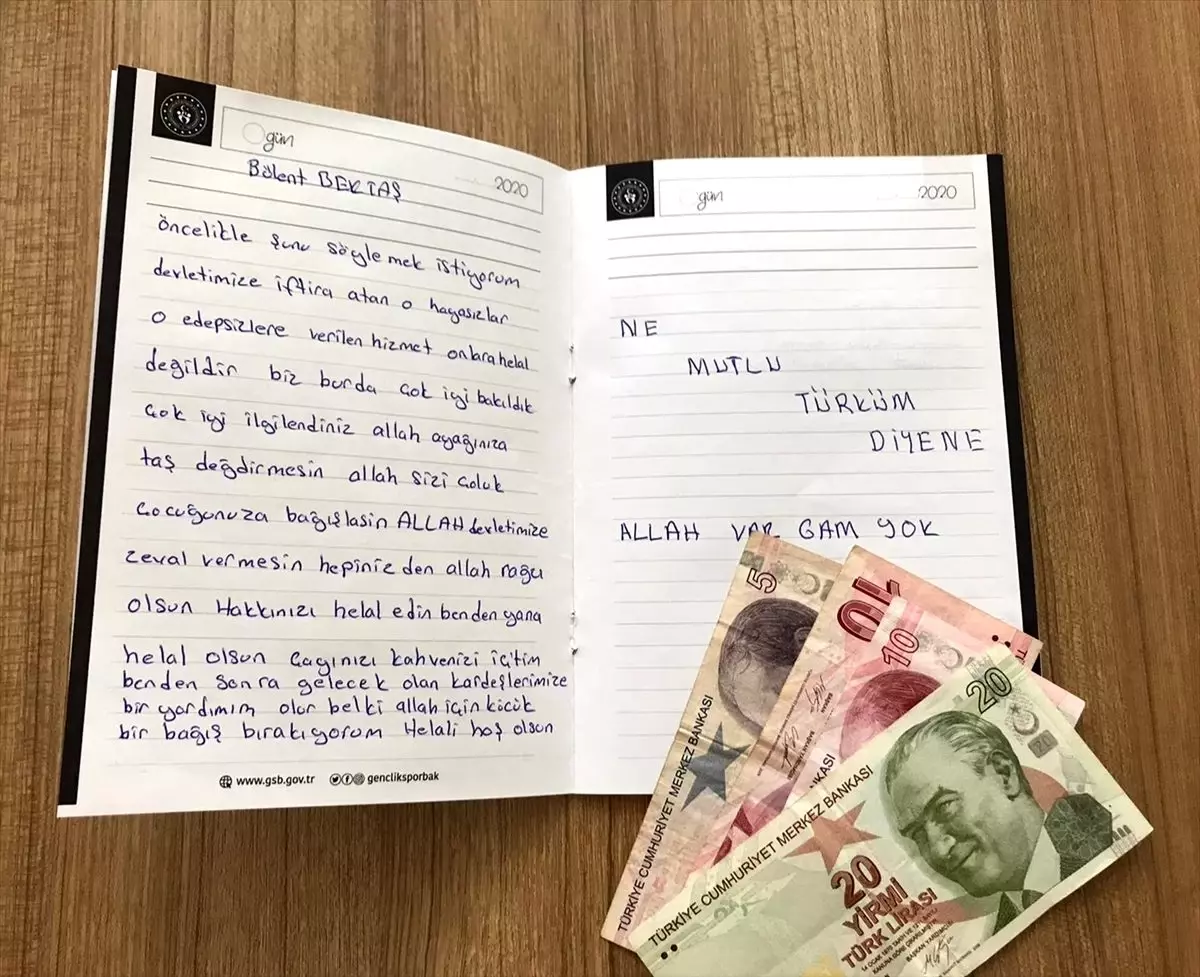 gün
2020
Bülent BEKTAŞ
öncelikle şunu söylemek istiyorum
devletimize iftira atan o hayasızlar
o edepsizlere verilen hizmet onlara helal
değildir biz burda çok iyi bakıldık
çok iyi ilgilendiniz allah ayağınıza
taş değdirmesin allah sizi çoluk
çocuğunuza bağışlasin ALLAH devletimize
zeval vermesin hepinizden allah ragı
olsun Hakkınızı helal edin benden yana
helal olsun çayınızı kahvenizi içitim
benden sonra gelecek olan kardeşlerimize
bir yardımım olur belki allah için kücük
bir bağış bırakıyorum Helali hoş olsun
www.gsb.gov.tr gencliksporbak
gün
2020
NE
MUTLU
TÜRKÜM
DİYENE
ALLAH VAR GAM YOK
5
TÜRKİYE CUMHURİYET MERKEZ BANKASI
10
10
KASI
20
TÜRKİYE CUMHURİYET MERKEZ BANKASI
20
20
YİRMİ
TÜRK LİRASI
14 OCAK 1970 TARİH VE 1211 SAYILI
KANUNA GÖRE ÇIKARILMIŞTIR
BAŞKAN YARDIMCISI